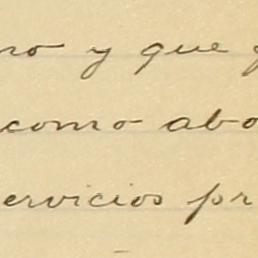 no y que
como abo
ervicios pr